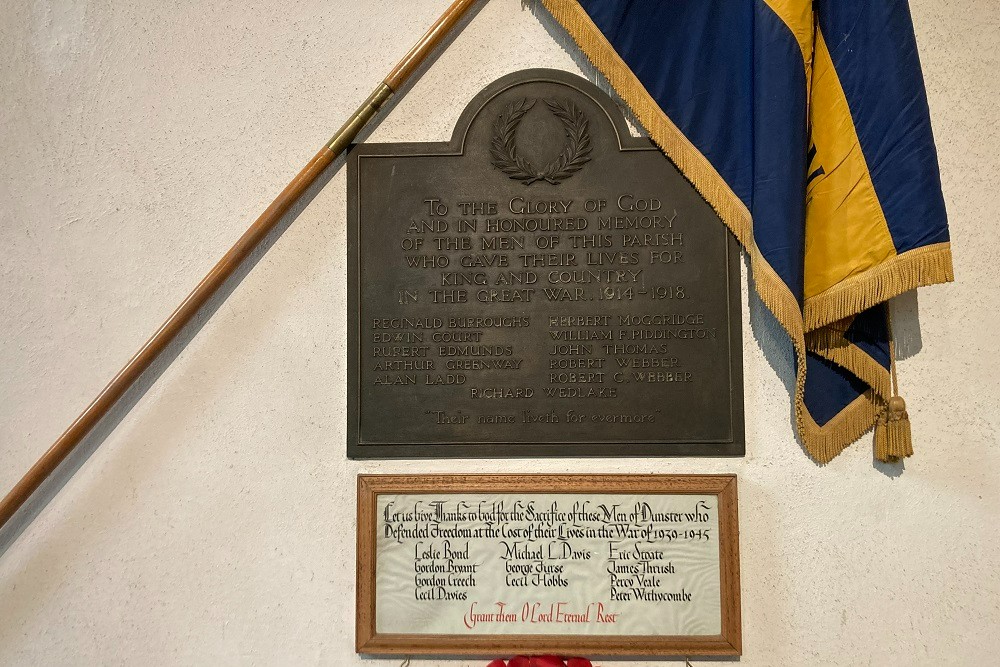 To the Glory of God
and in honoured memory
of the men of this parish
who gave their lives for
King and Country
in the Great War. 1914-1918.
Reginald Burroughs
Edwin Court
Rupert Edmunds
Arthur Greenway
Alan Ladd
Herbert Moggridge
William F Piddington
John Thomas
Robert Webber
Robert C Webber
Richard Wedlake
"Their name liveth for evermore"
Let us Give Thanks to God for the Sacrifice of these Men of Dunster who
Defended Freedom at the Cost of their Lives in the War of 1939-1945
Leslie Bond
Gordon Bryant
Gordon Creech
Cecil Davies
Michael L. Davis
George Furse
Cecil Hobbs
Eric Stoate
James Thrush
Percy Veale
Peter Withycombe
Grant them O Lord Eternal Rest